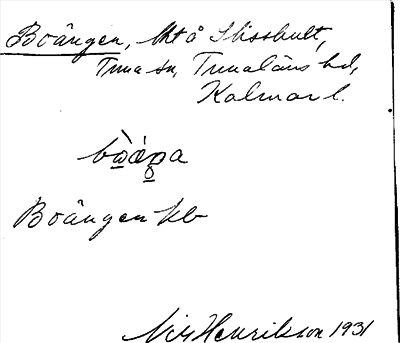 Boängen, lht å Slisshult,
Tuna sn, Tunaläns hd,
Kalmar l.
Boängen kb
Nils Henrikson 1931